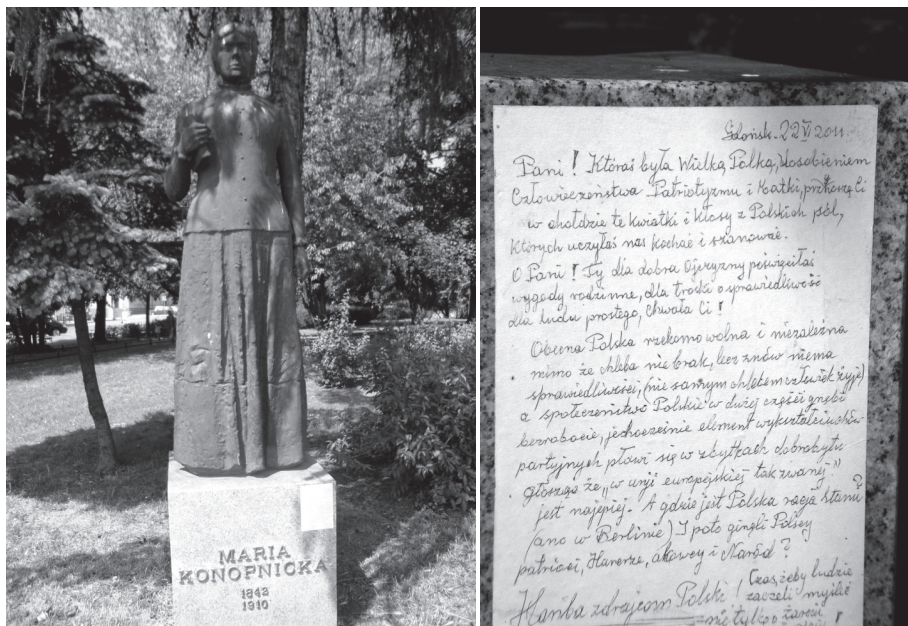 MARIA
KONOPNICKA
1842
1910
Gdańsk. 22 VI 2011
Pani! Któraś była Wielką Polką, Uosobieniem
Człowieczeństwa Patriotyzmu i Matki, przynoszę Ci
w chołdzie te kwiatki i kłosy z Polskich pól,
których uczyłaś nas kochać i szanować.
O Pani! Ty dla dobra Ojczyzny poświęciłaś
wygody rodzinne, dla troski o sprawiedliwość
dla ludu prostego, Chwała Ci!
Obecna Polska rzekomo wolna i niezależna
mimo że chleba nie brak, lecz znów niema
sprawiedliwości, (nie samym chlebem człowiek żyje)
a społeczeństwo Polskie w dużej części gnębi
bezrobocie, jednocześnie element wykształciuchów
partyjnych pławi się w zbytkach dobrobytu
głosząc że „w unji europejskiej tak zwanej"
jest najlepiej. A gdzie jest Polska racja stanu?
(ano w Berlinie) I poto ginęli Polscy
patrioci, Harcerze, akowcy i Naród?
Hańba zdrajcom Polski! Czas, żeby ludzie
zaczęli myśleć
nie tylko o